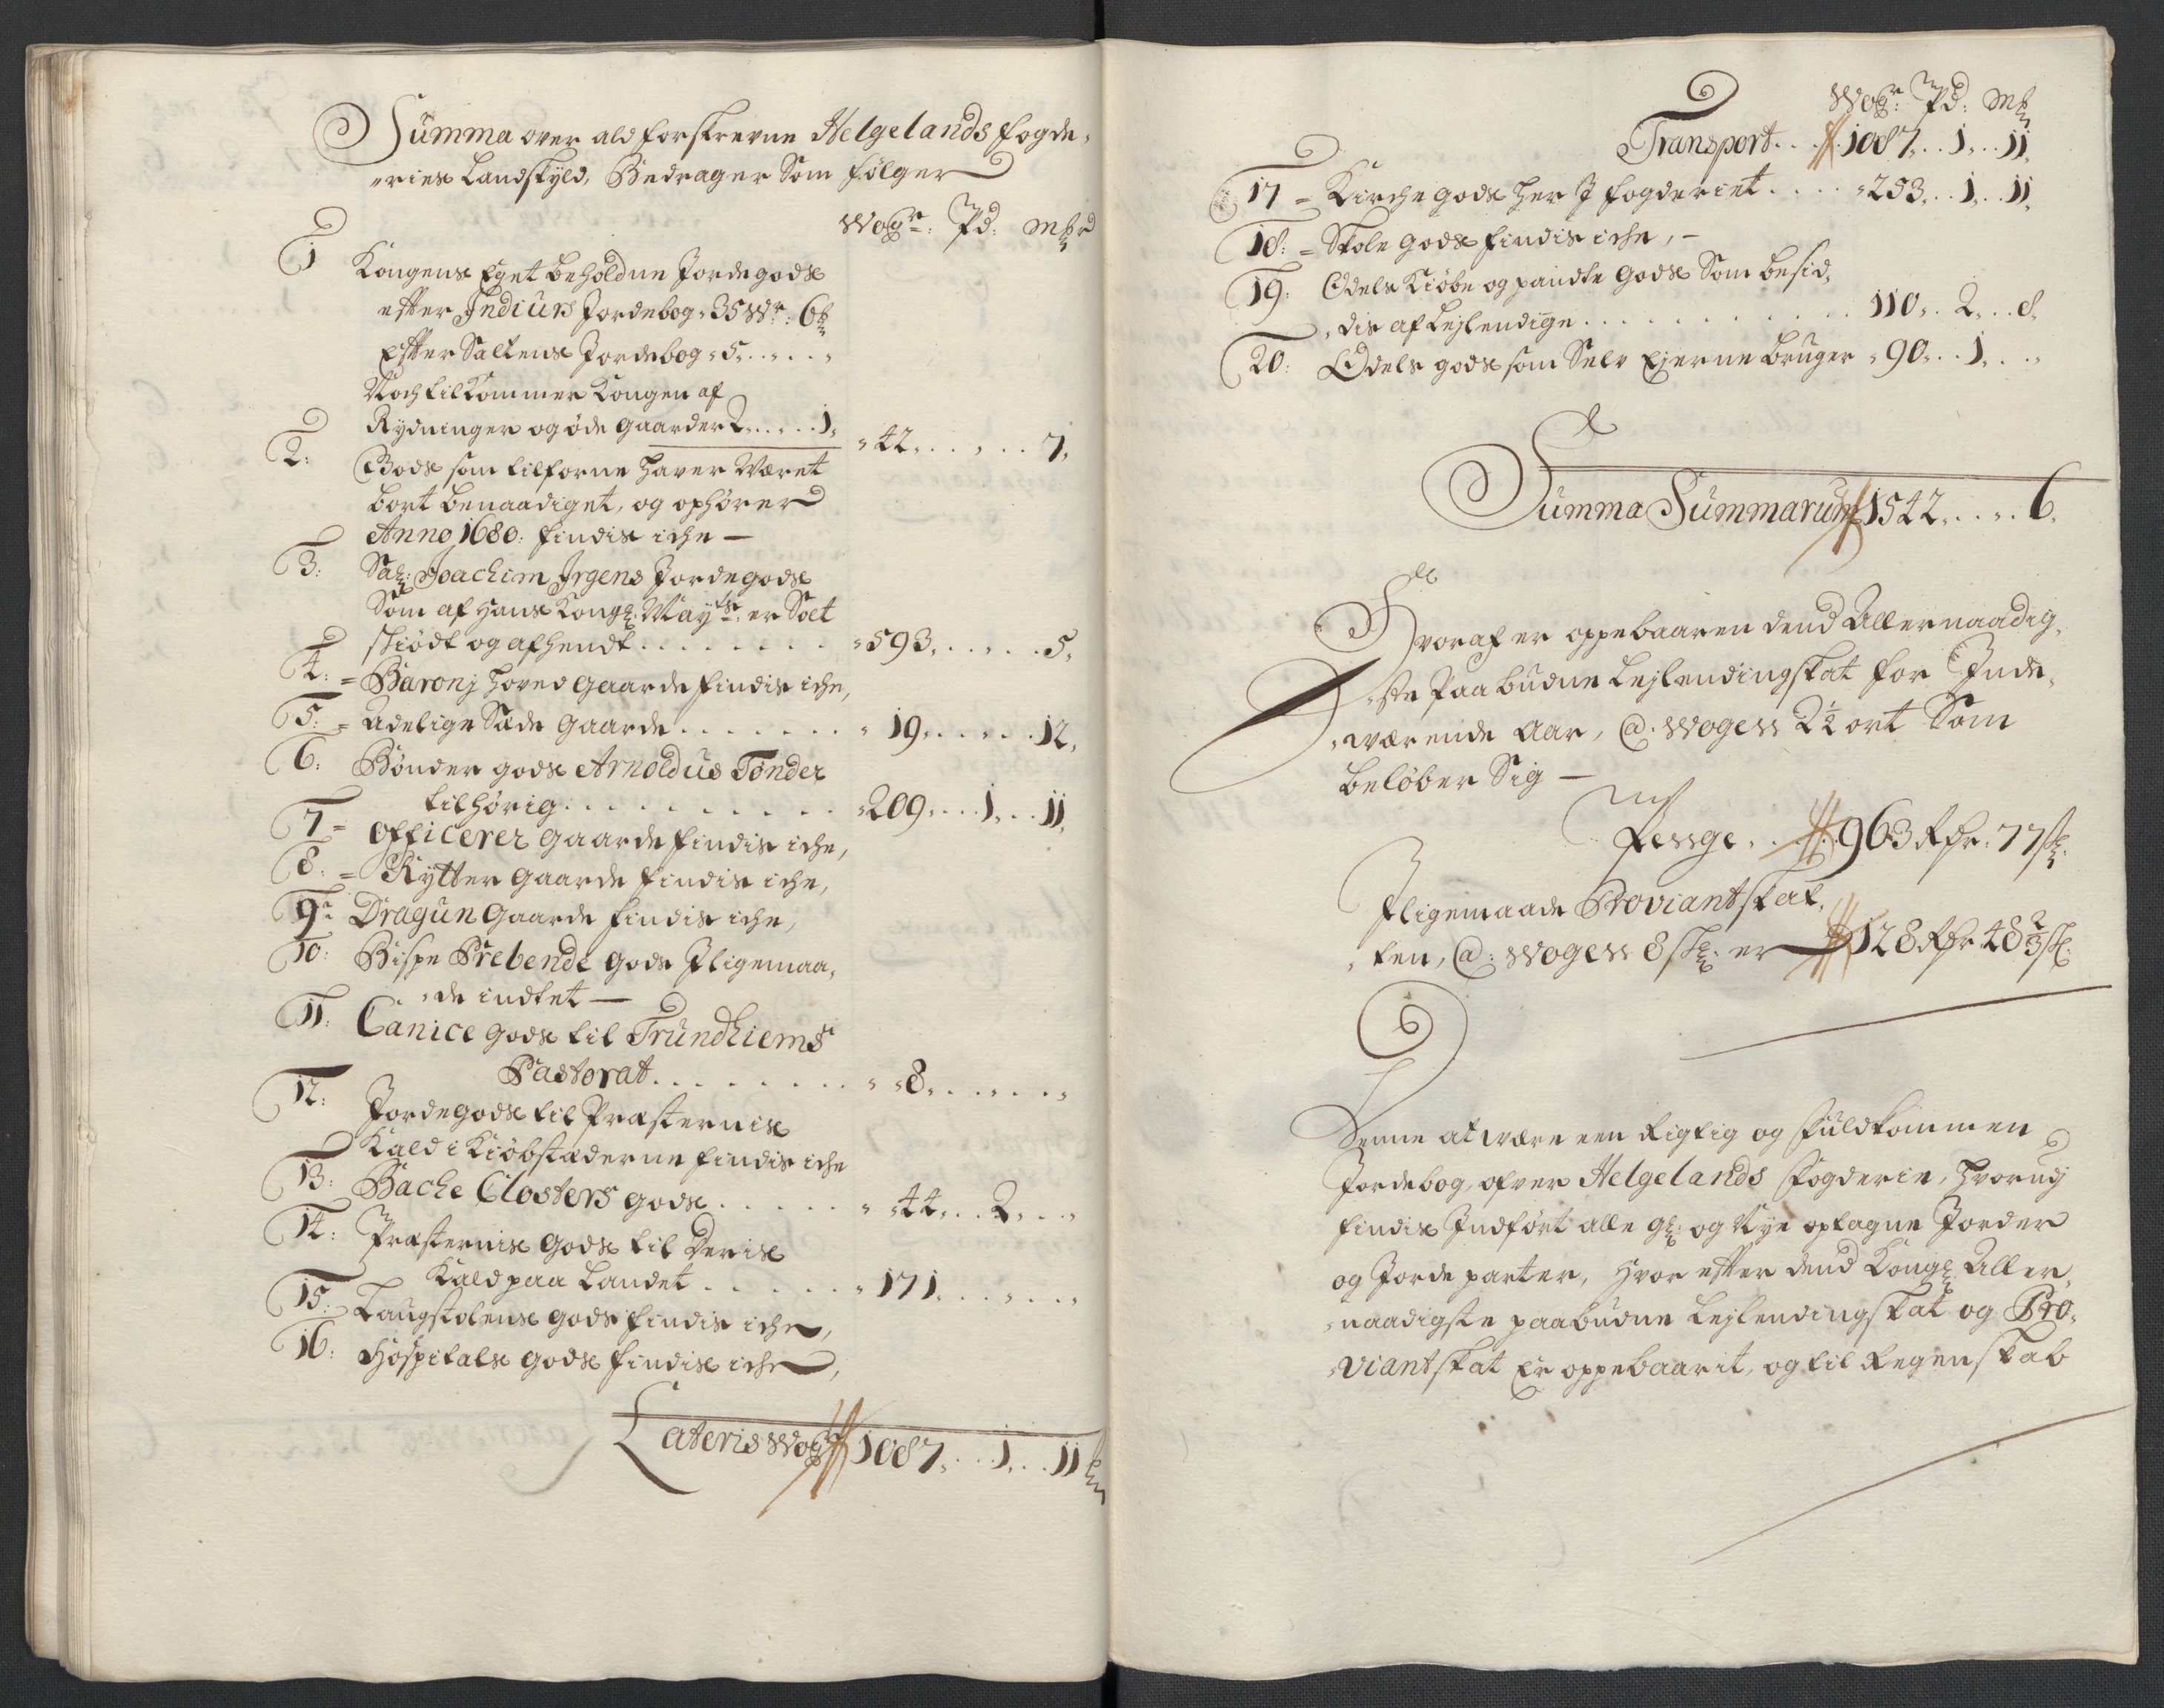 Summa over ald forskrevne Helgelands fogde,
,,ries Landskyld, Bedrager Som følger
Wogr: Pd: Mkr
1 Kongens Eget beholdne Jordegods
efter Indiurs Jordebog, 35 Wr: 6
Efter Saltens Jordebog, 5. . . . .
Noch tilkommer Kongen af
Rydninger og øde gaarder 2. . . . . 1,
42. . . . . 7,
2: Gods som tilforne haver Været
bort benaadiget, og ophører
Anno 1680: findis iche —
3: Sal: Joachim Irgens Jordegods
Som af Hans Kongl: Mayts: er Solt
skiødt og afhendt . . . . . . . 593. . . . . 5,
4: = Baronj hoved gaarde findis iche,
5: = Adelige Sæde gaarde . . . . . . 19. . . . . 12,
6: Bønder gods Arnoldus Tønder
tilhørig . . . . . . . . . 209. . . 1. . . 11,
7 = Officerer gaarde findis iche,
8: = Rytter gaarde findis iche,
9: Dragun gaarde findis iche,
10: Bispe Prebende gods Iligemaa,
,,de indtet —
11: Canice gods til Trundhiems
Pastorat . . . . . . . . 8. . . . . .
12: Jordegods til Præsternis
Kald i Kiøbstæderne findis iche
13: Bache Closters gods . . . . . 44. . . 2. . .
14: Præsternis Gods til Deris
Kald paa Landet . . . . . 171. . . . .
15: Laugstolens gods findis iche,
16: Hospitals gods findis iche,
Lateris Wogr 1087. . . 1. . . 11
Wogr: Pd: Mk
Transport. . . 1087. . . 1. . . 11,
17 = Kirche gods her I fogderiet . . . . 253. . . 1. . . 11,
18: = Skole Gods findis iche, —
19: Odels Kiøbe og pandte Gods Som besid,
,,dis af Lejlendige . . . . . . . . . 110. . 2. . . 8,
20: Odels gods som Selv Ejerne bruger 90. . . 1. . .
Summa Summarum 1542. . . . . 6.
Hvoraf er oppebaaren dend Allernaadig,
,,ste Paabudne Lejlendingskat for Inde,
,,værende Aar, @. Wogen 2½ ort Som
beløber Sig —
Penge. . . 963 Rdr. 77 sk:
Iligemaade Proviantskat,
,,ten, @: Wogen 8 sk: er 128 Rdr 48 2/3 sk:
Denne at være een Rigtig og fuldkommen
Jordebog, ofver Helgelands fogderie, hvorudj
findis Indført alle gl: og Nye optagne Jorder
og Jorde parter, Hvor efter dend Kongl: Aller,
,,naadigste paabudne Lejlendingskat og Pro,
,,viantskat Er oppebaarit, og til Regenskab